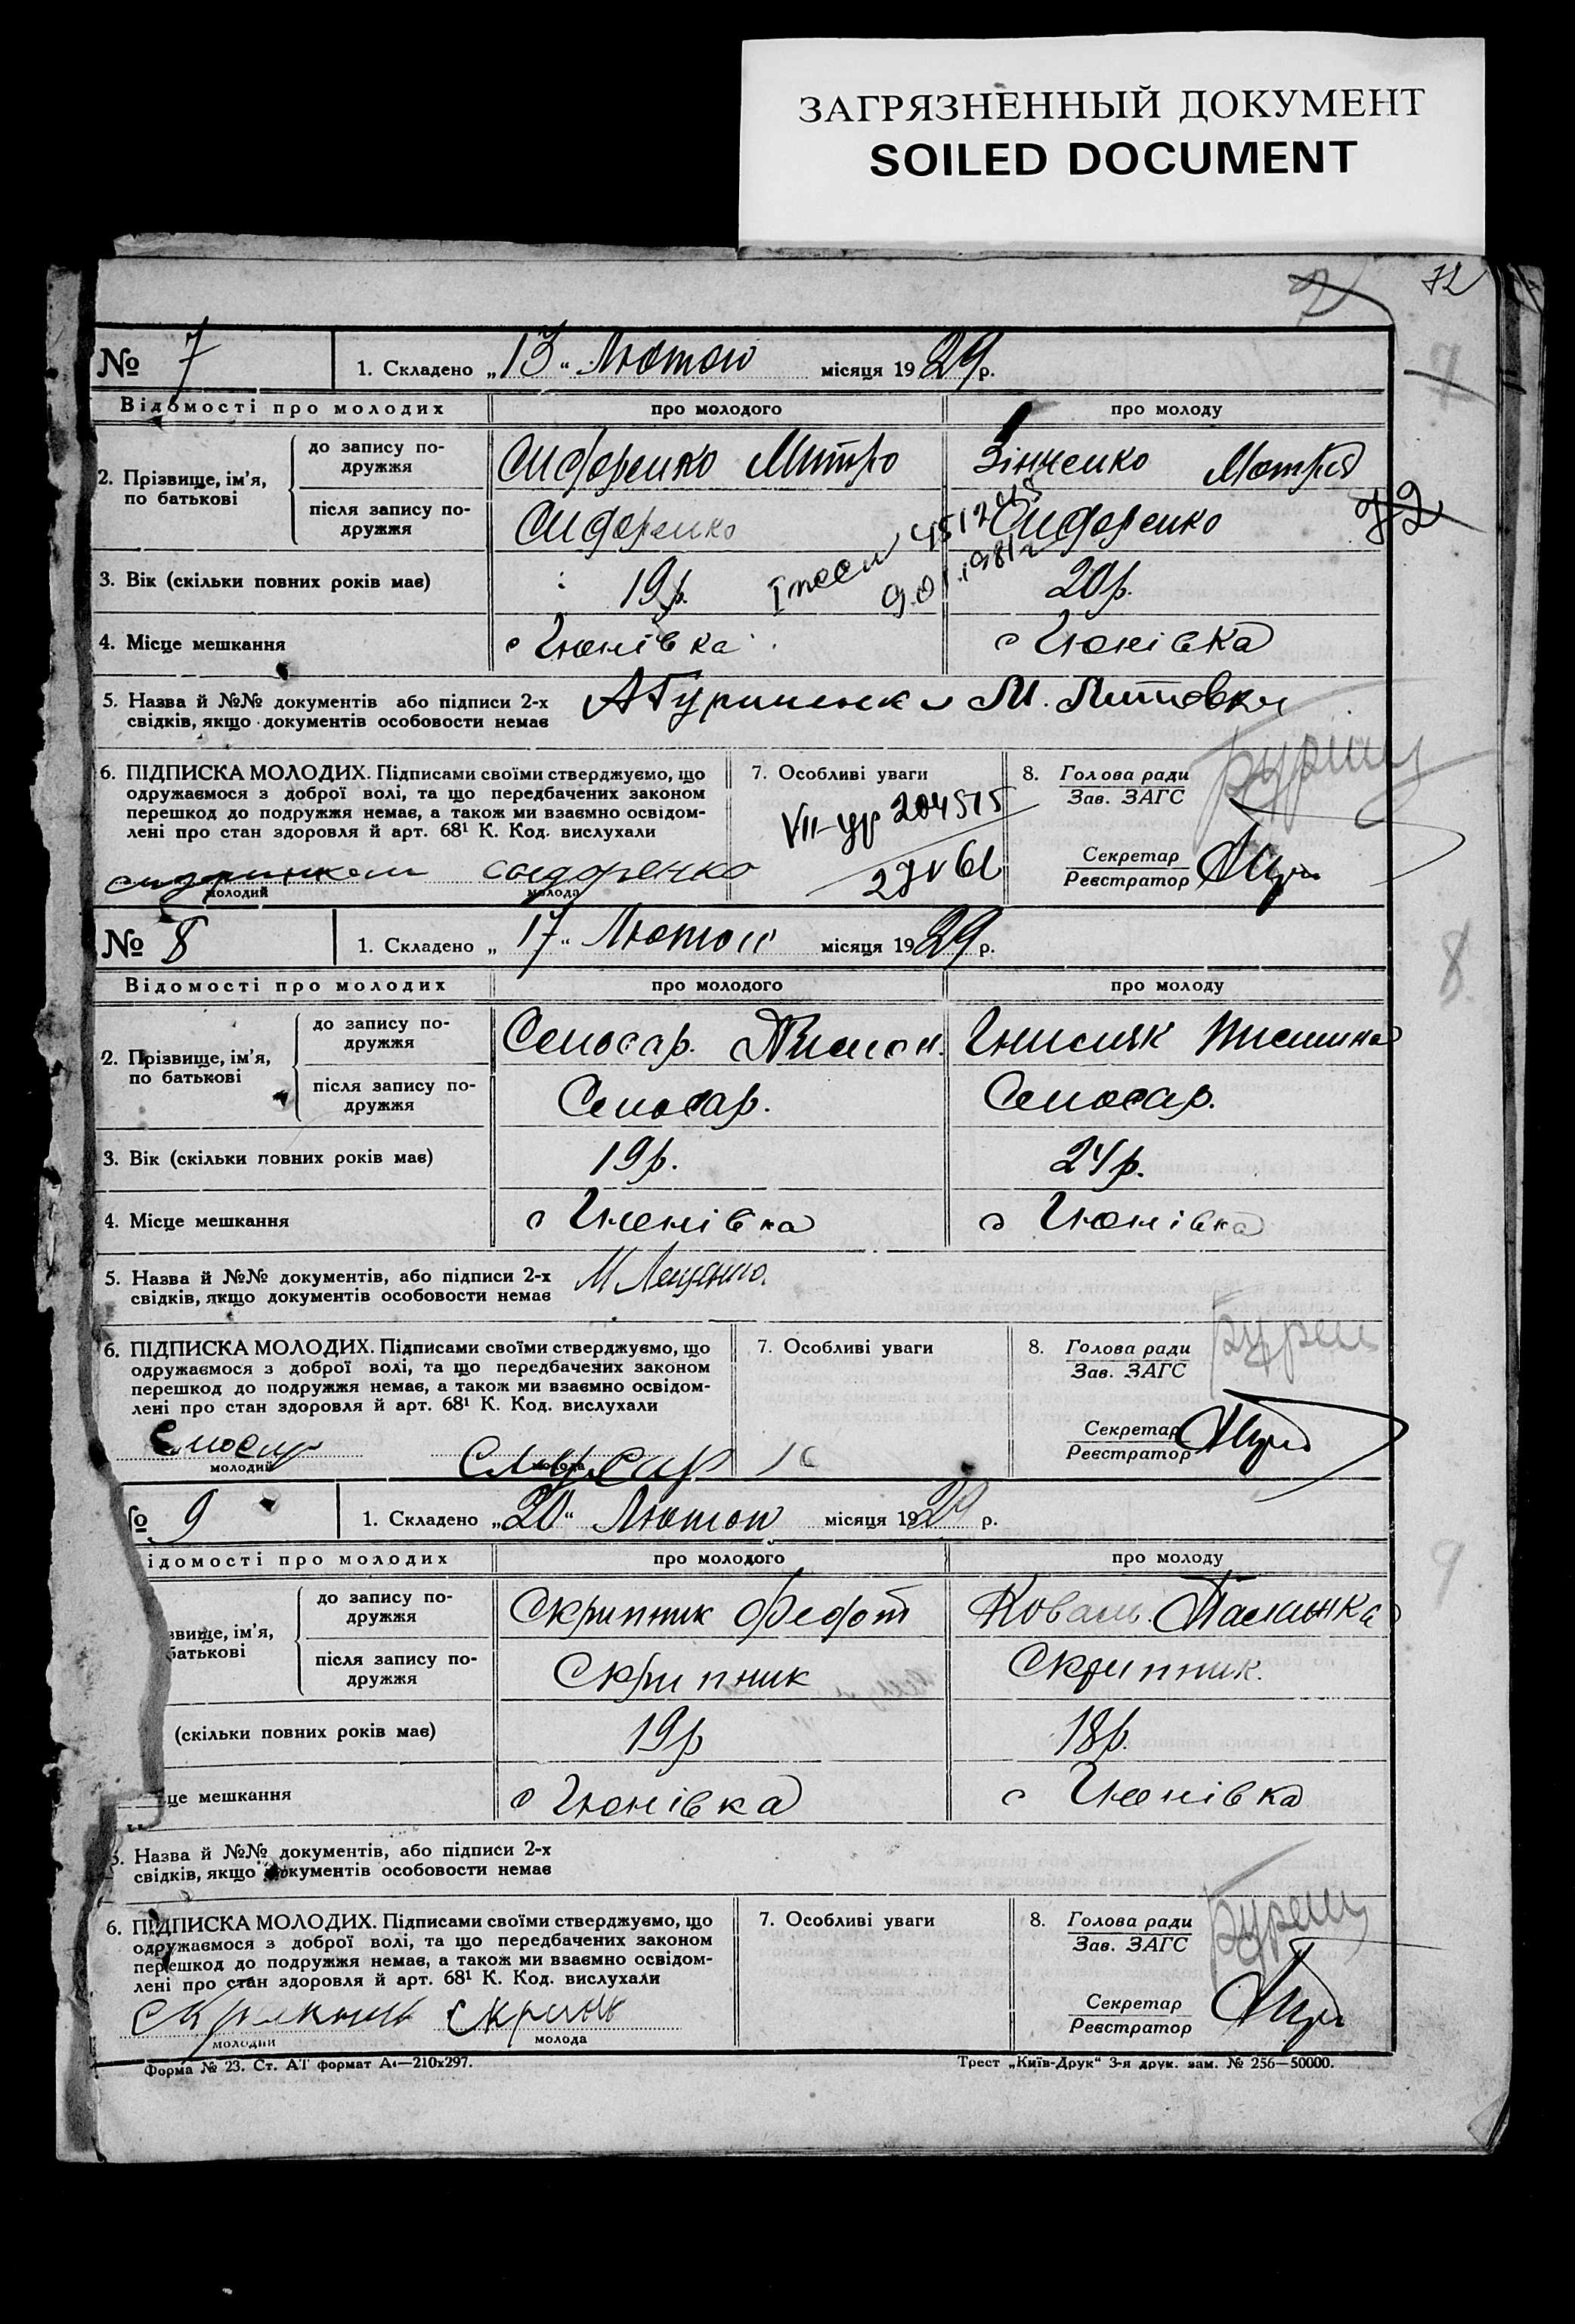 ЗАГРЯЗНЕННЫЙ ДОКУМЕНТ
SOILED DOCUMENT
2 72
№ 7 1. Складено „13“ Лютого місяця 1929 р.
7
Відомості про молодих про молодого про молоду
2. Прізвище, ім’я, по батькові
до запису подружжя Сидоренко Митро Зінченко Мотря
72
після запису подружжя Сидоренко Сидоренко
3. Вік (скільки повних років має) 19р. 20р.
9.01.1981г
4. Місце мешкання с Гюнівка с Гюнівка
5. Назва й №№ документів або підписи 2-х
свідків, якщо документів особовости немає
6. ПІДПИСКА МОЛОДИХ. Підписами своїми стверджуємо, що
одружаємося з доброї волі, та що передбачених законом
перешкод до подружжя немає, а також ми взаємно освідом-
лені про стан здоровля й арт. 68¹ К. Код. вислухали
7. Особливі уваги
204515
8. Голова ради
Зав. ЗАГС
Секретар
Реєстратор
сидоренко
молодий молода
№ 8 1. Складено „17“ Лютого місяця 1929 р.
8
Відомості про молодих про молодого про молоду
2. Прізвище, ім’я, по батькові
до запису подружжя
після запису подружжя
3. Вік (скільки повних років має) 19р. 24р.
4. Місце мешкання с Гюнівка с Гюнівка
5. Назва й №№ документів, або підписи 2-х
свідків, якщо документів особовости немає
6. ПІДПИСКА МОЛОДИХ. Підписами своїми стверджуємо, що
одружаємося з доброї волі, та що передбачених законом
перешкод до подружжя немає, а також ми взаємно освідом-
лені про стан здоровля й арт. 68¹ К. Код. вислухали
7. Особливі уваги
8. Голова ради
Зав. ЗАГС
Секретар
Реєстратор
молодий молода
№ 9 1. Складено „20“ Лютого місяця 1929 р.
9
ідомості про молодих про молодого про молоду
звище, ім’я, батькові
до запису подружжя Скрипник Федот Коваль
після запису подружжя Скрипник Скрипник.
(скільки повних років має) 19р 18р.
це мешкання с Гюнівка с Гюнівка
5. Назва й №№ документів, або підписи 2-х
свідків, якщо документів особовости немає
6. ПІДПИСКА МОЛОДИХ. Підписами своїми стверджуємо, що
одружаємося з доброї волі, та що передбачених законом
перешкод до подружжя немає, а також ми взаємно освідом-
лені про стан здоровля й арт. 68¹ К. Код. вислухали
7. Особливі уваги
8. Голова ради
Зав. ЗАГС
Секретар
Реєстратор
молодий молода
Форма № 23. Ст. АТ формат А4—210х297. Трест „Київ-Друк“ 3-я друк. зам. № 256—50000.